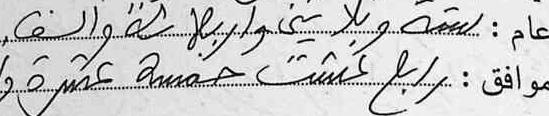 عام : ستة وثلاثين واربعمائة والف
موافق : رابع غشت خمسة عشرة و